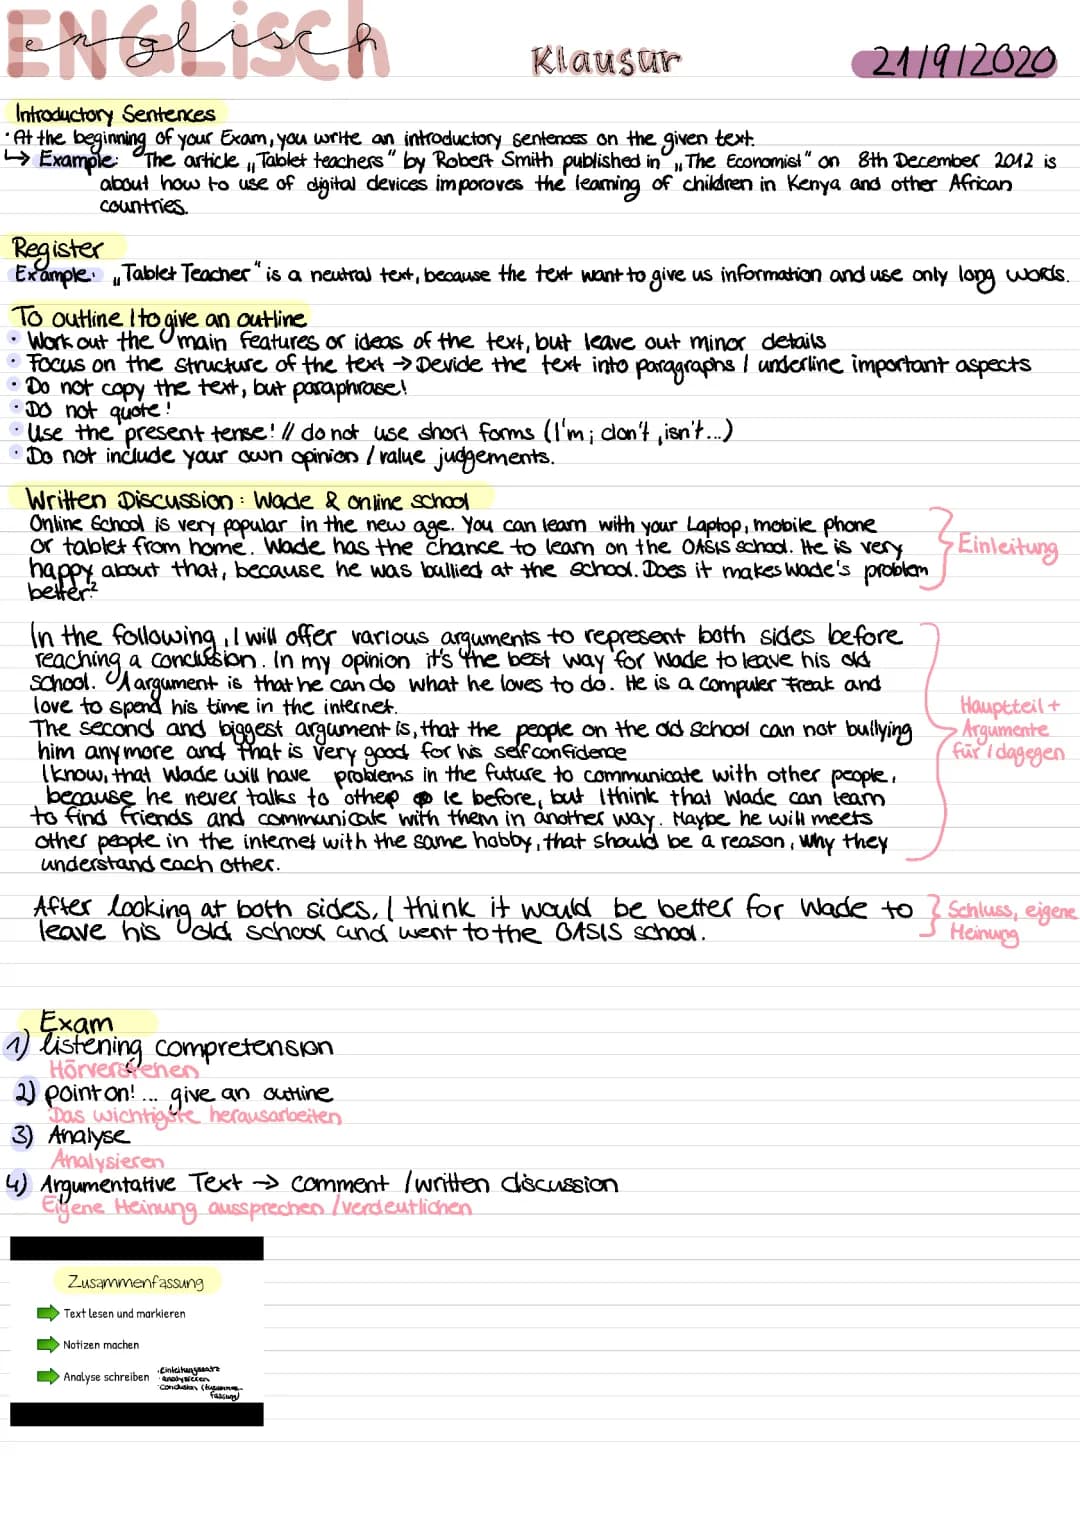 ENGLISCH
englisch
Klausur
21/9/2020
Introductory Sentences
· At the beginning of your Exam, you write an introductory sentences on the given text.
↳ Example: The article „Tablet teachers" by Robert Smith published in „The Economist" on 8th December 2012 is
about how to use of digital devices imporoves the learning of children in Kenya and other African
countries.
Register
Example: „Tablet Teacher" is a neutral text, because the text want to give us information and use only long words.
To outline / to give an outline
• Work out the main features or ideas of the text, but leave out minor details
• Focus on the structure of the text → Devide the text into paragraphs / underline important aspects
• Do not copy the text, but paraphrase!
• Do not quote!
• Use the present tense! // do not use short forms (I'm; don't, isn't...)
• Do not include your own opinion / value judgements.
Written Discussion: Wade & online school
Online School is very popular in the new age. You can learn with your Laptop, mobile phone
or tablet from home. Wade has the chance to learn on the OASIS school. He is very
happy about that, because he was bullied at the school. Does it makes Wade's problem
better?
Einleitung
In the following, I will offer various arguments to represent both sides before
reaching a conclusion. In my opinion it's the best way for Wade to leave his old
school. 1 argument is that he can do what he loves to do. He is a computer freak and
love to spend his time in the internet.
The second and biggest argument is, that the people on the old school can not bullying
him anymore and that is very good for his selfconfidence
I know, that Wade will have problems in the future to communicate with other people,
because he never talks to other le before, but I think that Wade can learn
to find friends and communicate with them in another way. Maybe he will meets
other people in the internet with the same hobby, that should be a reason, why they
understand each other.
Hauptteil +
Argumente
für / dagegen
After looking at both sides, I think it would be better for Wade to
leave his old school and went to the OASIS school.
Schluss, eigene
Meinung
Exam
1) listening compretension
Hörverstehen
2) point on! ... give an outline
Das wichtigste herausarbeiten
3) Analyse
Analysieren
4) Argumentative Text → comment / written discussion
Eigene Meinung aussprechen / verdeutlichen
Zusammenfassung
Text lesen und markieren
Notizen machen
Analyse schreiben
· Einleitungssatz
· analysieren
· Conclusion (Zusammen-
fassung)